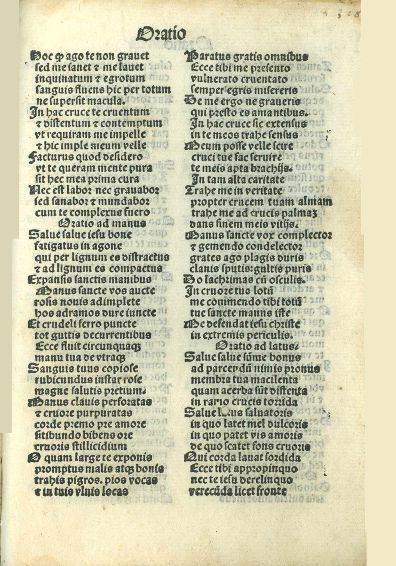 Oratio
Hoc qp ago te non gravet
sed me sanet & me lavet
inquinatum & egrotum
sanguis fluens hic per totum
ne supersit macula.
In hac cruce te cruentum
& distentum & contemptum
vt requiram me impelle
& hic imple nieum velle
Facturus quod desidero
vt te queram mente pura
sit hec mea prima cura
Nec est labor nec gravabor
sed sanabor & mundabor
cum te complexus fuero
Oratio ad manus
Salue salue iesu bone
fatigatus in agone
qui per lignum es distractus
& ad lignum es compactus
Expansis sanctis manibus
Manus sancte vos aucte
rosis nouis adimplete
hos ad ramos dure iuncte
Et crudeli ferro puncte
tot guttis decurrentibus
Ecce fluit circunquaqȝ
manu tua de vtraqȝ
Sanguis tuus copiose
rubicundus instar rose
magne salutis pretium.
Manus clauis perforatas
& cruore purpuratas
corde premo pre amore
sitibundo bibens ore
cruoris stillicidium
O quam large te exponis
promptus malis atqȝ bonis
trahis pigros. pios vocas
& in tuis vluis locas
Paratus gratis omnibus
Ecce tibi me presento
vulnerato cruentato
semper egris misereris
De me ergo ne graueris
qui presto es amantibus.
In hac cruce sic extensus
in te meos trahe sensus
Meum posse velle scire
cruci tue fac seruire
te meis apta brachijs.
In tam alta caritate
Trahe me in veritate
propter crucem tuam almam
trahe me ad crucis palmaȝ
dans finem meis vitijs.
Manus sancte vos complector
& gemendo condelector
grates ago plagis duris
clauis sputis: guttis puris
Do lachrimas cū osculis.
In cruore tuo lotū
me commendo tibi totū
tue sancte manns iste
Me defendat iesu christe
in extremis periculis.
Oratio ad latus.
Salue salue sūme bonus
ad parcendū nimis pronus
membra tua macilenta
quam acerba sūt distenta
in ramo crucis torrida
Salue saluatoris
in quo latet mel dulcoris
in quo patet vis amoris
de quo scatet fons cruoris
Qui corda lauat sordida
Ecce tibi appropinquo
nec te iesu derelinquo
verecūda licet fronte